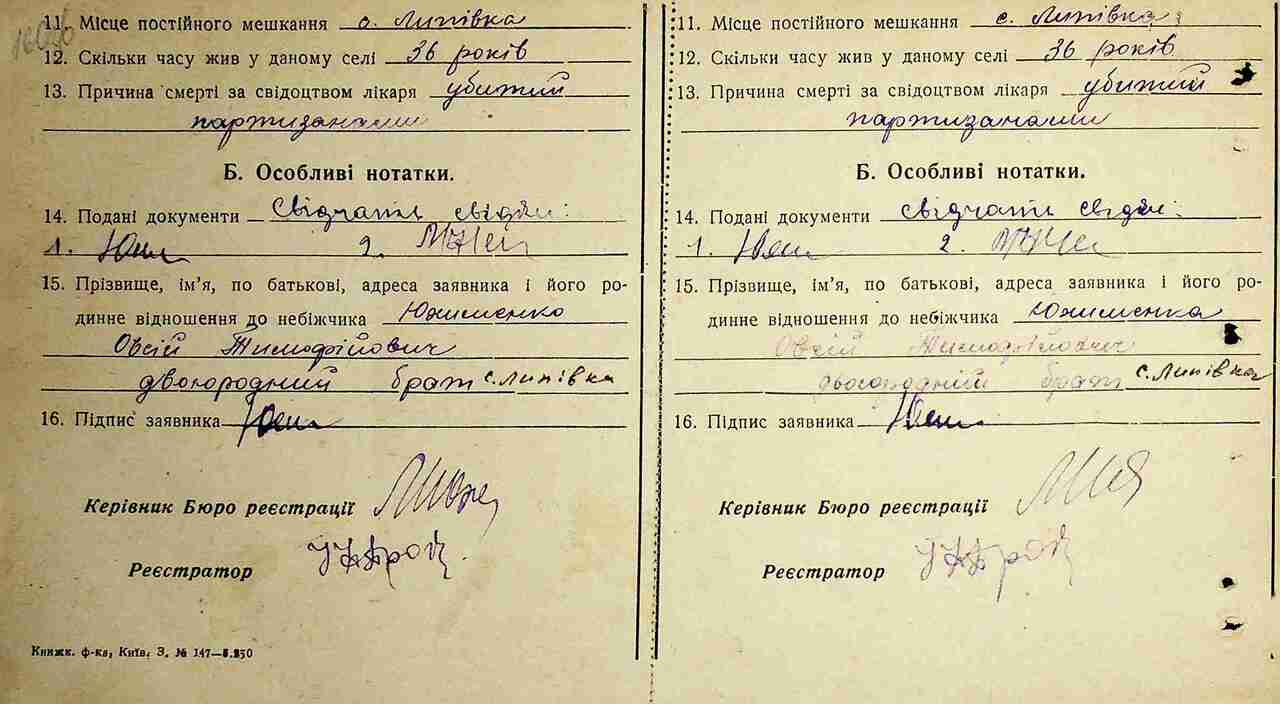 11. Місце постійного мешкання с. Липівка
12. Скільки часу жив у даному селі 36 років
13. Причина смерті за свідоцтвом лікаря убитий
партизанами
Б. Особливі нотатки.
14. Подані документи Свідчати свідки:
1. 2.
15. Прізвище, ім'я, по батькові, адреса заявника і його ро-
динне відношення до небіжчика Юхименко
Овсій Тимофійович
двоюродний брат с. Липівка
16. Підпис заявника
Керівник Бюро реєстрації
Реєстратор
Книжк. ф-ка, Київ, З. № 147—
11. Місце постійного мешкання с. Липівка
12. Скільки часу жив у даному селі 36 років
13. Причина смерті за свідоцтвом лікаря убитий
партизанами
Б. Особливі нотатки.
14. Подані документи свідчати свідки:
1. 2.
15. Прізвище, ім'я, по батькові, адреса заявника і його ро-
динне відношення до небіжчика Юхименка
Овсій Тимофійович
двоюродній брат с. Липівка
16. Підпис заявника
Керівник Бюро реєстрації
Реєстратор